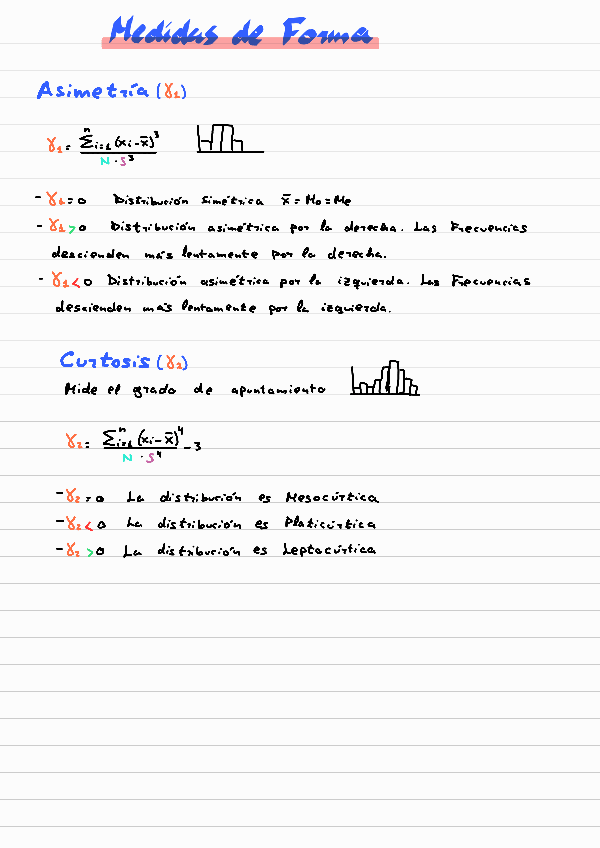 Medidas de Forma
Asimetría (γ₁)
γ₁ = Σⁿᵢ₌₁ (xi - x̄)³ / N · S³
- γ₁ = 0 Distribución simétrica x̄ = Mo = Me
- γ₁ > 0 Distribución asimétrica por la derecha. Las Frecuencias
descienden más lentamente por la derecha.
- γ₁ < 0 Distribución asimétrica por la izquierda. Las Frecuencias
descienden más lentamente por la izquierda.
Curtosis (γ₂)
Mide el grado de apuntamiento
γ₂ = Σⁿᵢ₌₁ (xi - x̄)⁴ / N · S⁴ - 3
- γ₂ = 0 La distribución es Mesocúrtica
- γ₂ < 0 La distribución es Platicúrtica
- γ₂ > 0 La distribución es Leptocúrtica